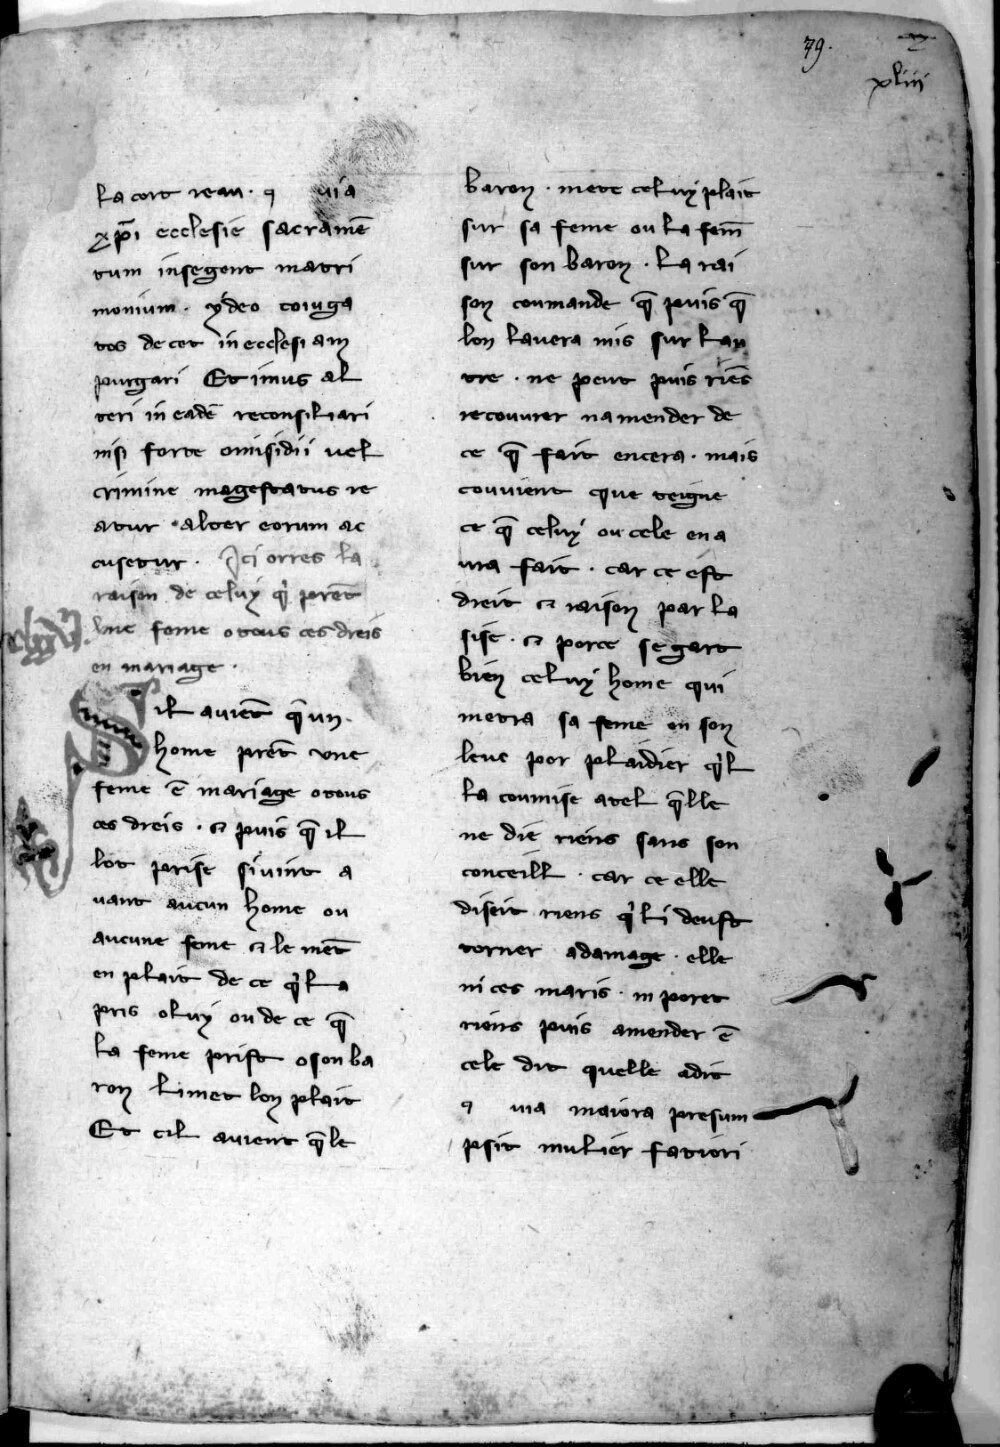 79.
xliii
la cort reau · q uia
xp̄i ecclesie sacramē
tum insegont matri
monium · ydeo coiuga
tos decet in ecclesiam
purgari Et imus al
teri in eadē reconsiliari
nisi forte omisidii vel
crimine magestatus re
atur · alter eorum ac
cusetur · Ici orres la
raison de celuy q̍ prēt
vne feme o tous ces dreis
en mariage ·
Sil auiēt q̄ un ·
home prēt vne
feme ē mariage o tous
ces dreis · et puis q̄ il
lot prise si vint a
uant aucun home ou
aucune feme et le mēt
en plait de ce q̍ la
pris o luy ou de ce q̄
la feme prist o son ba
ron li met lon plait
Et cil auient q̄ le
baron · mete celuy plait
sur sa feme ou la fem̄
sur son baron · la rai
son coumande q̄ puis q̄
lon lauera mis sur lau
tre · ne peut puis riēs
recouurer n amender de
ce q̄ fait encera · mais
couuient que teigne
ce q̄ celuy ou cele en a
ura fait · car ce est
dreit et raison par la
sise · et porce se gart
bien celuy home qui
metra sa feme en son
leuc por plaidier q̍l
la coumise a tel q̄lle
ne die riens sans son
conceill · car ce elle
diseit riens q̍ li deust
torner a damage · elle
ni ces maris · ni poret
riens puis amender ē
cele dit quelle a dit
q uia maiora presum
psit mulier fatiori